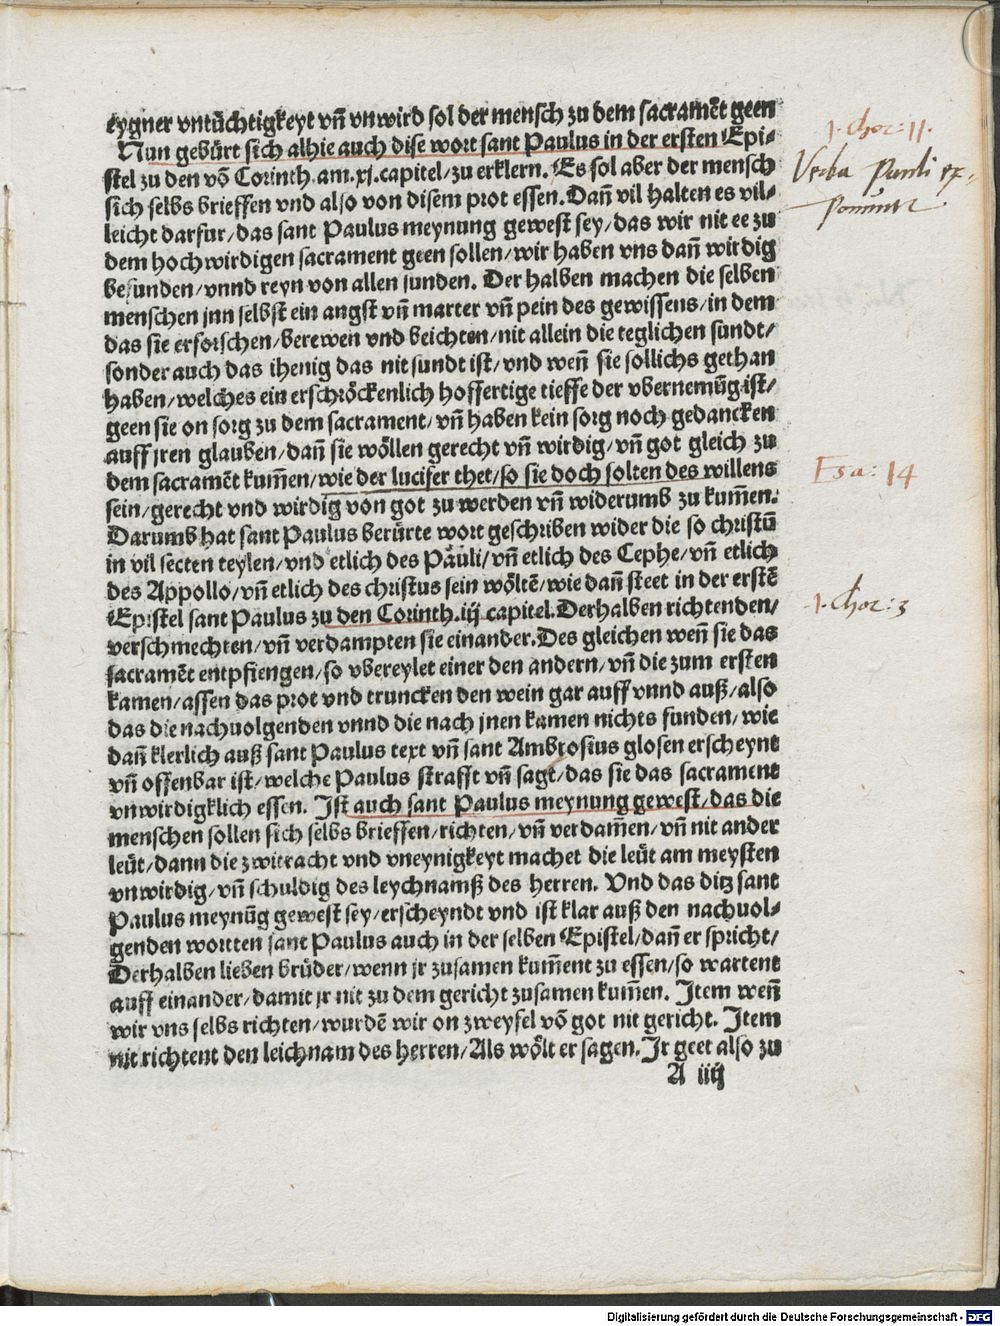 eygner vntüchtigkeyt vñ vnwird sol der mensch zu dem sacramẽt geen
Nun gebürt sich alhie auch dise wort sant Paulus in der ersten Epi-
stel zu den võ Corinth. am. xj. capitel/zu erklern. Es sol aber der mensch
sich selbs brieffen vnd also von disem prot essen. Dañ vil halten es vil-
leicht darfur/das sant Paulus meynung gewest sey/das wir nit ee zu
dem hochwirdigen sacrament geen sollen/wir haben vns dañ wirdig
befunden/vnnd reyn von allen sunden. Der halben machen die selben
menschen jnn selbst ein angst vñ marter vñ pein des gewissens/in dem
das sie erforschen/berewen vnd beichten/nit allein die teglichen sundt/
sonder auch das ihenig das nit sundt ist/vnd weñ sie sollichs gethan
haben/welches ein erschröckenlich hoffertige tieffe der vbernemũg ist/
geen sie on sorg zu dem sacrament/vñ haben kein sorg noch gedancken
auff jren glauben/dañ sie wöllen gerecht vñ wirdig/vñ got gleich zu
dem sacramẽt kum̃en/wie der lucifer thet/so sie doch solten des willens
sein/gerecht vnd wirdig von got zu werden vñ widerumb zu kum̃en.
Darumb hat sant Paulus berürte wort geschriben wider die so christũ
in vil secten teylen/vnd etlich des Pauli/vñ etlich des Cephe/vñ etlich
des Appollo/vñ etlich des christus sein wöltẽ/wie dañ steet in der erstẽ
Epistel sant Paulus zu den Corinth. iij capitel. Derhalben richtenden/
verschmechten/vñ verdampten sie einander. Des gleichen weñ sie das
sacramẽt entpfiengen/so vbereylet einer den andern/vñ die zum ersten
kamen/assen das prot vnd truncken den wein gar auff vnnd auß/also
das die nachuolgenden vnnd die nach jnen kamen nichts funden/wie
dañ klerlich auß sant Paulus text vñ sant Ambrosius glosen erscheynt
vñ offenbar ist/welche Paulus strafft vñ sagt/das sie das sacrament
vnwirdigklich essen. Ist auch sant Paulus meynung gewest/das die
menschen sollen sich selbs brieffen/richten/vñ verdam̃en/vñ nit ander
leüt/dann die zwitracht vnd vneynigkeyt machet die leüt am meysten
vnwirdig/vñ schuldig des leychnamß des herren. Vnd das ditz sant
Paulus meynũg gewest sey/erscheyndt vnd ist klar auß den nachuol-
genden wortten sant Paulus auch in der selben Epistel/dañ er spricht/
Derhalben lieben brüder/wenn jr zusamen kum̃ent zu essen/so wartent
auff einander/damit jr nit zu dem gericht zusamen kum̃en. Item weñ
wir vns selbs richten/wurdẽ wir on zweyfel võ got nit gericht. Item
nit richtent den leichnam des herren/Als wölt er sagen. Ir geet also zu
A iiij
1. Chor: 11.
Verba Pauli ex-
ponuntr
Esa: 14
1. Chor: 3
Digitalisierung gefördert durch die Deutsche Forschungsgemeinschaft - DFG